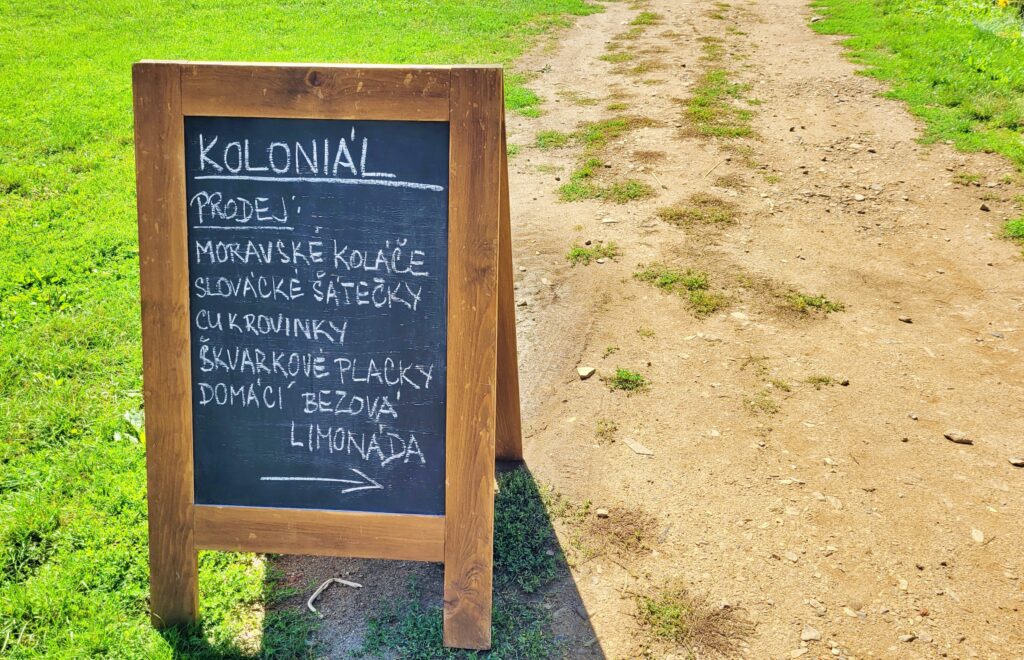 KOLONIÁL
PRODEJ:
MORAVSKÉ KOLÁČE
SLOVÁCKÉ ŠÁTEČKY
CUKROVINKY
ŠKVARKOVÉ PLACKY
DOMÁCÍ BEZOVÁ
LIMONÁDA